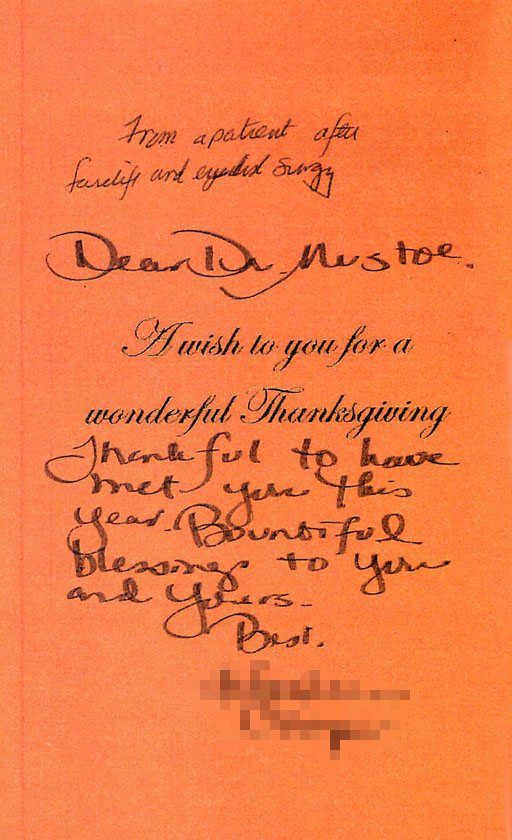 From a patient after
facelift and eyelid surgery
Dear Dr. Mustoe.
A wish to you for a
wonderful Thanksgiving
Thankful to have
met you this
year. Bountiful
blessings to you
and yours.
Best.